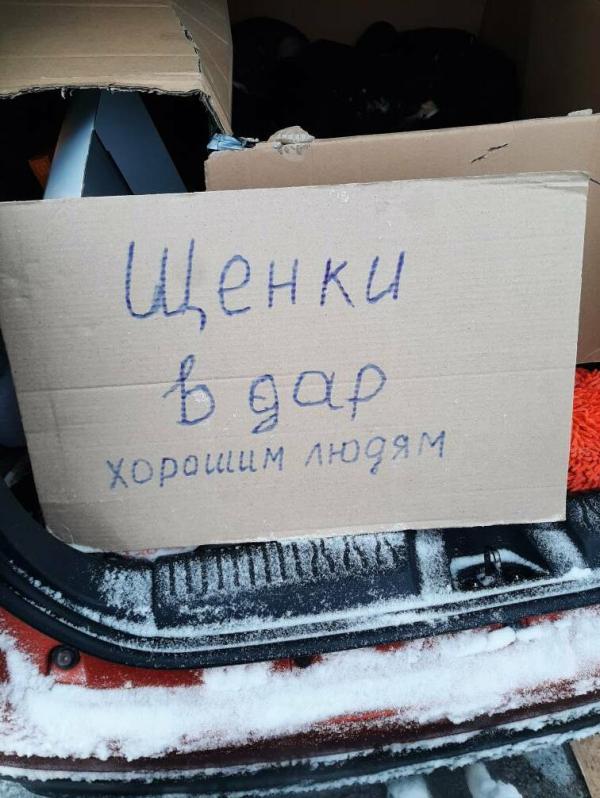 Щенки
в дар
хорошим людям